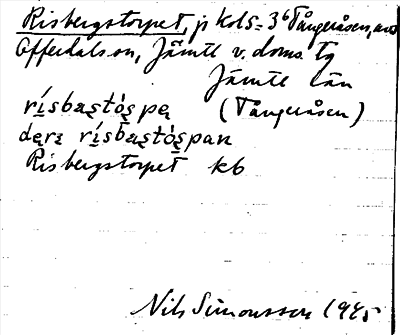 Risbergstorpet, p kols. 3⁶ Tångeråsen, avs
Offerdals sn, Jämtl v. doms. tg
Jämtl län
rísbas̨tós̨pę (Tångeråsen)
derɪ rísbas̨tós̨pan
Risbergstorpet kb
Nils Simonsson 1945